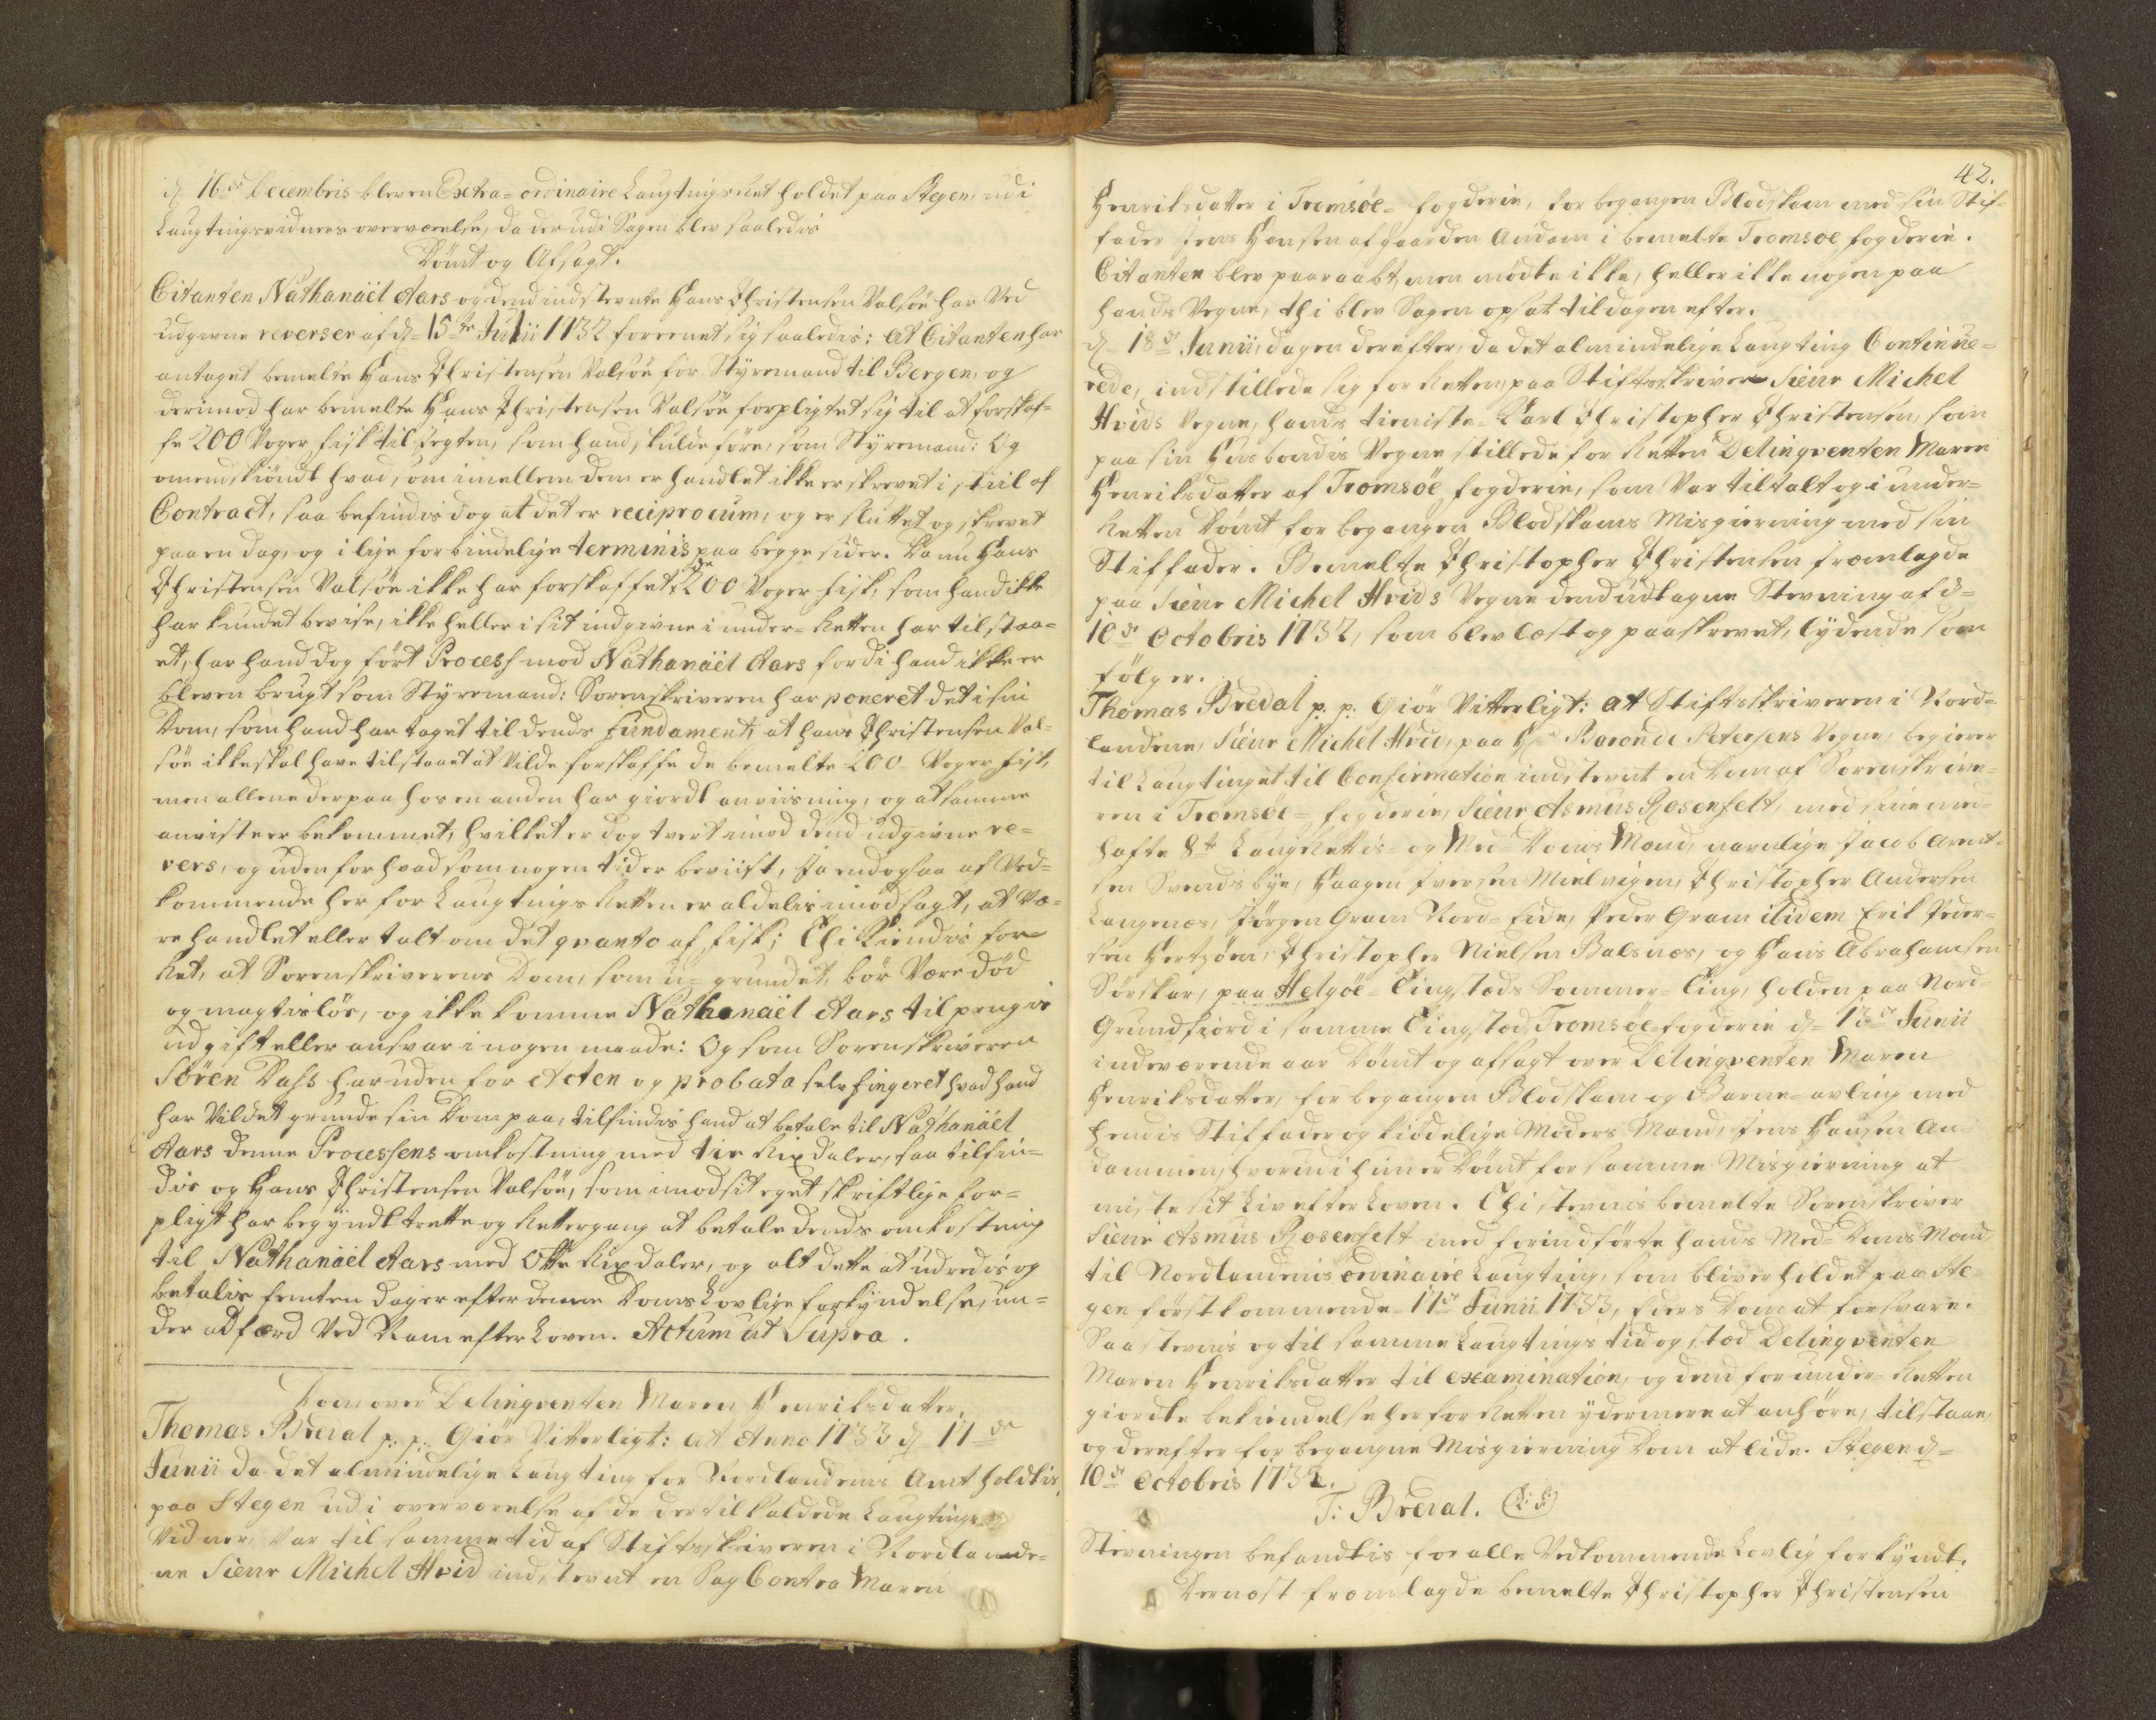 d. 16de Decembris bleven Extra-ordinaire Laugtings Ret holdet paa Stegen, udi
Laugtingsvidners overværelse, da der udi Sagen blev saaledis
Dömt og Afsagt.
Citanten Nathanaël Aars og dend indstevnte Hans Christensen Valsöe har Ved
udgivne reverser af d. 15de Julii 1732 foreenet sig saaledis: at Citanten har
antaget bemelte Hans Christensen Valsöe for Styremand til Bergen, og
derimod har bemelte Hans Christensen Valsöe forpligtet sig til at forskaf-
fe 200 Voger fisk til Jegten, som hand skulde före, som Styremand: Og
omendskiöndt hvad som imellem dem er handlet ikke er skrevet i stiil af
Contract, saa befindis dog at det er reciprocum, og er sluttet og skrevet
paa en dag, og i lige forbindelige terminis paa begge sider. Da nu Hans
Christensen Valsöe ikke har forskaffet de 200 Voger fisk, som hand ikke
har kundet bevise, ikke heller i sit indgivne i under-Retten har tilstaa-
et, har hand dog fört Process mod Nathanaël Aars fordi hand ikke er
bleven brugt som Styremand: Sorenskriveren har poneret det i sin
Dom, som hand har taget til dends fundament, at Hans Christensen Val-
söe ikke skal have tilstaaet at Vilde forskaffe de bemelte 200 Voger fisk,
men allene derpaa hos en anden har giordt anviisning, og at samme
anviste er bekommet, hvilket er dog tvert imod dend udgivne re-
vers, og uden for hvad som nogen tid er beviist, Ja endogsaa af Ved-
kommende her for Laugtings Retten er aldelis imodsagt, at Væ-
re handlet eller talt om det qvanto af fisk; Thi kiendis for
Ret, at Sorenskriverens Dom, som u-grundet, bör Være död
og magtislös, og ikke komme Nathanaël Aars til pengis
udgift eller ansvar i nogen maade: Og som Sorenskriveren
Sören Dass har uden for Acten og probata selv fingeret hvad hand
har Vildet grunde sin Dom paa, tilfindis hand at betale til Nathanaël
Aars denne Processens omkostning med tie Rixdaler, saa tilfin-
dis og Hans Christensen Valsöe, som imod sit eget skriftlige for-
pligt har begyndt trette og Rettergang at betale dends omkostning
til Nathanaël Aars med Otte Rixdaler, og alt dette at udredis og
betalis femten dager efter denne Doms Lovlige forkyndelse, un-
der adfærd Ved Nam efter Loven. Actum ut Supra.
Dom over Delinqventen Maren Henriksdatter.
Thomas Breval p. p. Giör Vitterligt: at Anno 1733 d. 17de
Junii da det almindelige Laugting for Nordlandenis Amt holdtis
paa Stegen udi overværelse af de dertil kaldede Laugtings
Vidner, Var til samme tid af Stiftsskriveren i Nordlande-
ne Sieur Michel Hvid indstevnt en Sag Contra Maren
42.
Henriksdatter i Tromsöe-fogderie, for begangen Blodskam med sin Stif-
fader Jens Hansen af gaarden Andam i bemelte Tromsoe fogderie.
Citanten blev paaraabt, men mödte ikke, heller ikke nogen paa
hands Vegne, thi blev Sagen opsat til dagen efter.
d. 18de Junii, dagen derefter, da det almindelige Laugting Continue-
rede, indstillede sig for Retten, paa Stiftsskriver Sieur Michel
Hvids Vegne, hands tieniste-Karl Christopher Christensen, som
paa sin Husbondis Vegne stillede for Retten Delinqventen Maren
Henriksdatter af Tromsöe fogderie, som Var tiltalt og i under-
Retten Dömt for begangen Blodskams Misgierning med sin
Stiffader. Bemelte Christopher Christensen fremlagde
paa Sieur Michel Hvids Vegne dend udtagne Stevning af d.
10de Octobris 1732, som blev læst og paaskrevet, lydende som
fölger.
Thomas Breval p. p. Giör Vitterligt: at Stiftsskriveren i Nord-
landene, Sieur Michel Hvid, paa Hr Baron de Petersens Vegne, begierer
til Laugtinget til Confirmation indstevnt en Dom af Sorenskrive-
ren i Tromsöe-fogderie, Sieur Asmus Rosenfelt, med sine med-
hafte 8te LaugRettis- og Med-Doms Mænd, navnlige Jacob Arent-
sen Svendsbye, Haagen Iversen Mielvigen, Christopher Andersen
Langenæs, Jörgen Gram Nord-Eide, Peder Gram itidem Erik Peder-
sen Hertzöen, Christopher Nielsen Balsnæs, og Hans Abrahamsen
Sörskar, paa Helgöe-Tingstæds Sommer-Ting, holden paa Nord-
Grundfiord i samme Tingstæd Tromsöe-fogderie d. 18de Junii
indeværende aar Dömt og afsagt over Delinqventen Maren
Henriksdatter, for begangen Blodskam og Barne-avling med
hendis Stiffader og kiödelige Moders Mand, Jens Hansen An-
dammen, hvorudi hun er Dömt for samme Misgierning at
miste sit Liv efter Loven. Thi stevnis bemelte Sorenskriver
Sieur Asmus Rosenfelt med forindförte hands Med-Doms Mænd
til Nordlandenis ordinaire Laugting, som bliver holdet paa Ste-
gen förstkommende 17de Junii 1733, deres Dom at forsvare.
Saa stevnis og til samme Laugtings tid og stæd Delinqventen
Maren Henriksdatter til examination, og dend for under-Retten
giordte bekiendelse her for Retten ydermere at anhöre, tilstaae,
og derefter for begangne Misgierning Dom at lide. Stegen d.
10de Octobris 1732.
T: Breval. (L: S:)
Stevningen befandtis for alle Vedkommende Lovlig forkyndt.
Dernæst fremlagde bemelte Christopher Christensen